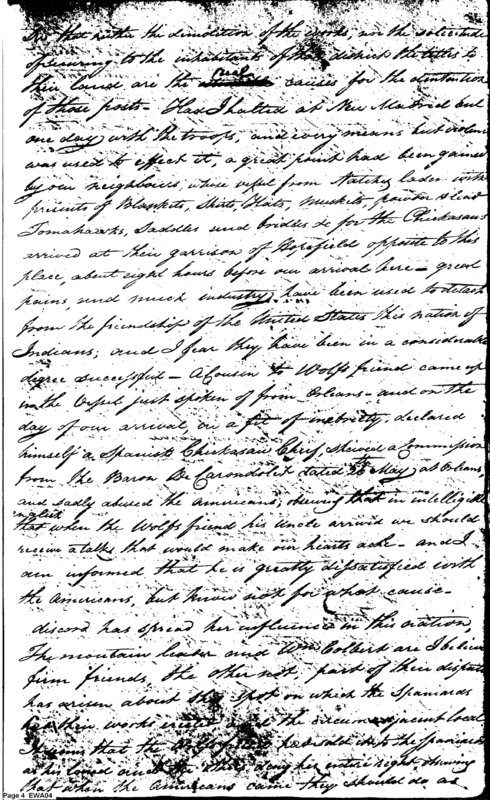 that neither the demolition of the works, nor the solicitude
of securing to the inhabitants of that district the titles to
their land are the real causes for the detention
of those posts. Had I halted at New Madrid but
one day with the troops, and every means but violence
was used to effect it, a great point had been gained
by our neighbours, whose vessel from Natchez laden with
presents of Blankets, Shirts, Hats, Muskets, powder & lead
Tomahawks, Saddles and bridles &c for the Chickasaws
arrived at their garrison of Hopefield opposite to this
place, about eight hours before our arrival here — great
pains, and much industry have been used to detach
from the friendship of the United States this nation of
Indians, and I fear they have been in a considerable
degree successful — A Cousin to Wolfs friend came up
in the Vessel just spoken of from Orleans — and on the
day of our arrival, in a fit of inebriety, declared
himself a Spanish Chickasaw Chief, shewed a Commission
from the Baron De Carondolet dated May at Orleans,
and sadly abused the Americans, observing that in intelligible
english
that when the Wolfs friend his uncle arrived we should
receive a talk that would make our hearts ache — and I
am informed that he is greatly dissatisfied with
the Americans, but know not for what cause —
discord has spread her influence in this nation,
The mountain leader and Wm Colbert are I believe
firm friends, the other not, part of their dispute
has arisen about the spot on which the Spaniards
had their works erected and the circumjacent local
It seems that the Wolfs friend had sold it to the Spaniards
as his and the other deny her entire right observing
that when the Americans came they should do as
Page 4 EWA04